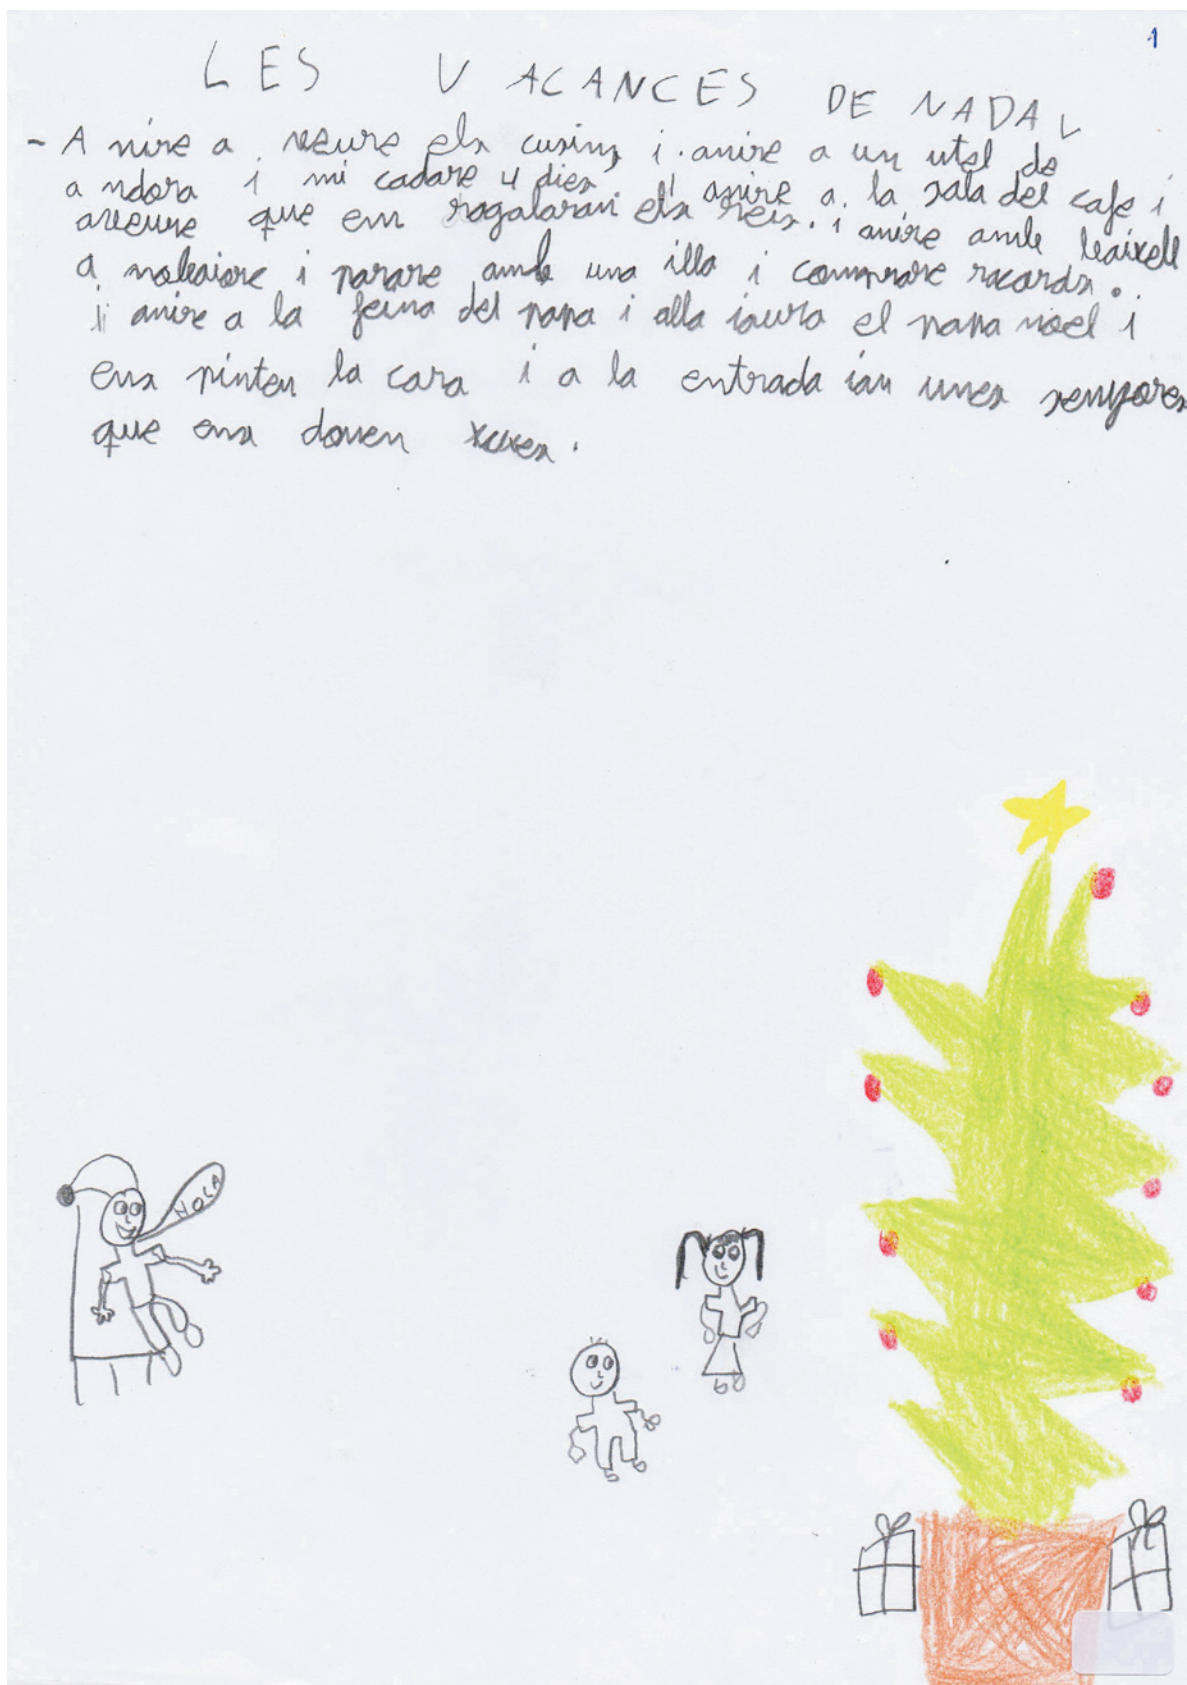 1
LES VACANCES DE NADAL
- A nire a veure els cusins i. anire a un utel de
a ndora i mi cadare 4 dies. i anire a. la sala del cafe i
aveure que em ragalaran els reis. i anire amb baixell
a mallaiorc i parare amb una illa i comprare racords.
i anire a la feina del papa i alla iaura el papa noel i
ens pinten la cara i a la entrada ian unes senyores
que ens donen xuxes.
HOLA